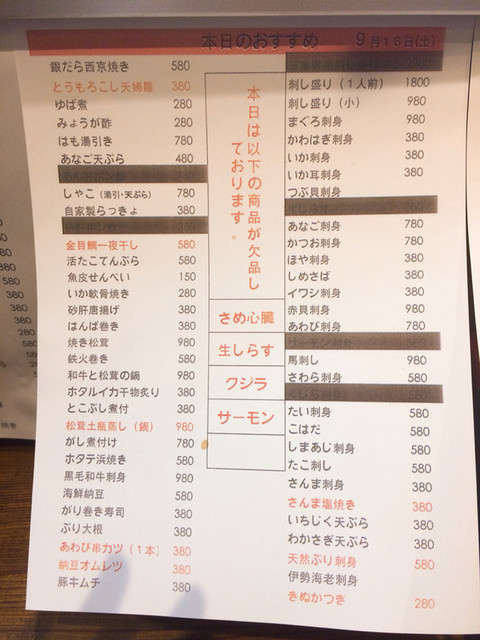 本日のおすすめ　９月１６日(土)
銀だら西京焼き 580
とうもろこし天婦羅 380
ゆば煮 280
みょうが酢 280
はも湯引き 780
あなご天ぷら 480
しゃこ（湯引・天ぷら） 780
自家製らっきょ 380
金目鯛一夜干し 580
活たこてんぷら 580
魚皮せんべい 150
いか軟骨焼き 280
砂肝唐揚げ 380
はんぱ巻き 380
焼き松茸 980
鉄火巻き 580
和牛と松茸の鍋 980
ホタルイカ干物炙り 380
とこぶし煮付 380
松茸土瓶蒸し（鍋） 980
がし煮付け 780
ホタテ浜焼き 580
黒毛和牛刺身 980
海鮮納豆 580
がり巻き寿司 380
ぶり大根 380
あわび串カツ（１本） 380
納豆オムレツ 380
豚キムチ 380
本日は以下の商品が欠品し
ております。
さめ心臓
生しらす
クジラ
サーモン
刺し盛り（１人前） 1800
刺し盛り（小） 980
まぐろ刺身 980
かわはぎ刺身 380
いか刺身 380
いか耳刺身 380
つぶ貝刺身
あなご刺身 780
かつお刺身 780
ほや刺身 380
しめさば 380
イワシ刺身 380
赤貝刺身 980
あわび刺身 780
馬刺し 980
さわら刺身 380
たい刺身 580
こはだ 580
しまあじ刺身 580
たこ刺し 580
さんま刺身 380
さんま塩焼き 380
いちじく天ぷら 380
わかさぎ天ぷら 380
天然ぶり刺身 580
伊勢海老刺身
きぬかつぎ 280